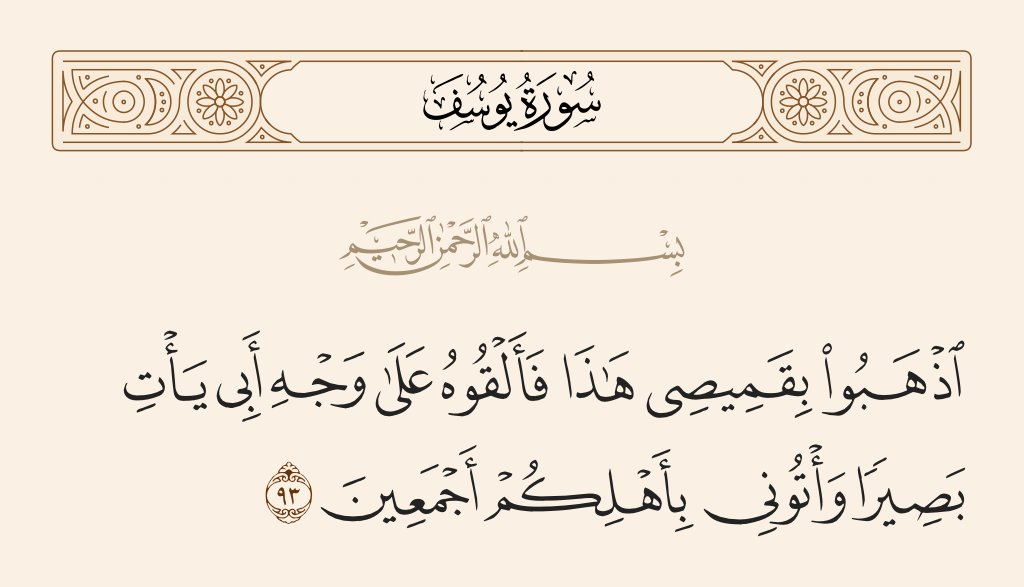 سُورَةُ يُوسُفَ
بِسْمِ ٱللَّهِ ٱلرَّحْمَٰنِ ٱلرَّحِيمِ
ٱذْهَبُوا۟ بِقَمِيصِى هَـٰذَا فَأَلْقُوهُ عَلَىٰ وَجْهِ أَبِى يَأْتِ
بَصِيرًا وَأْتُونِى بِأَهْلِكُمْ أَجْمَعِينَ ٩٣